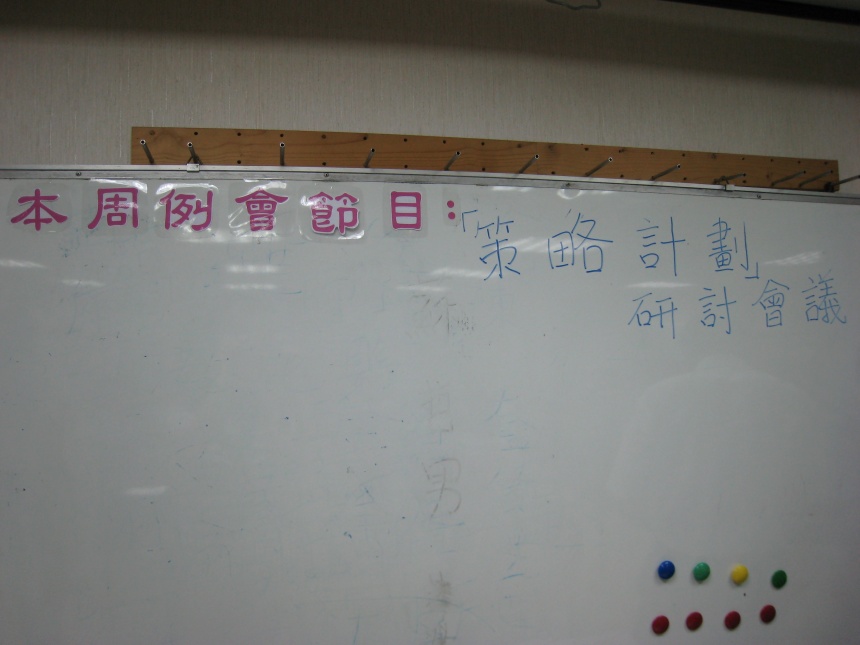 本周例會節目：「策略計劃」
研討會議
男